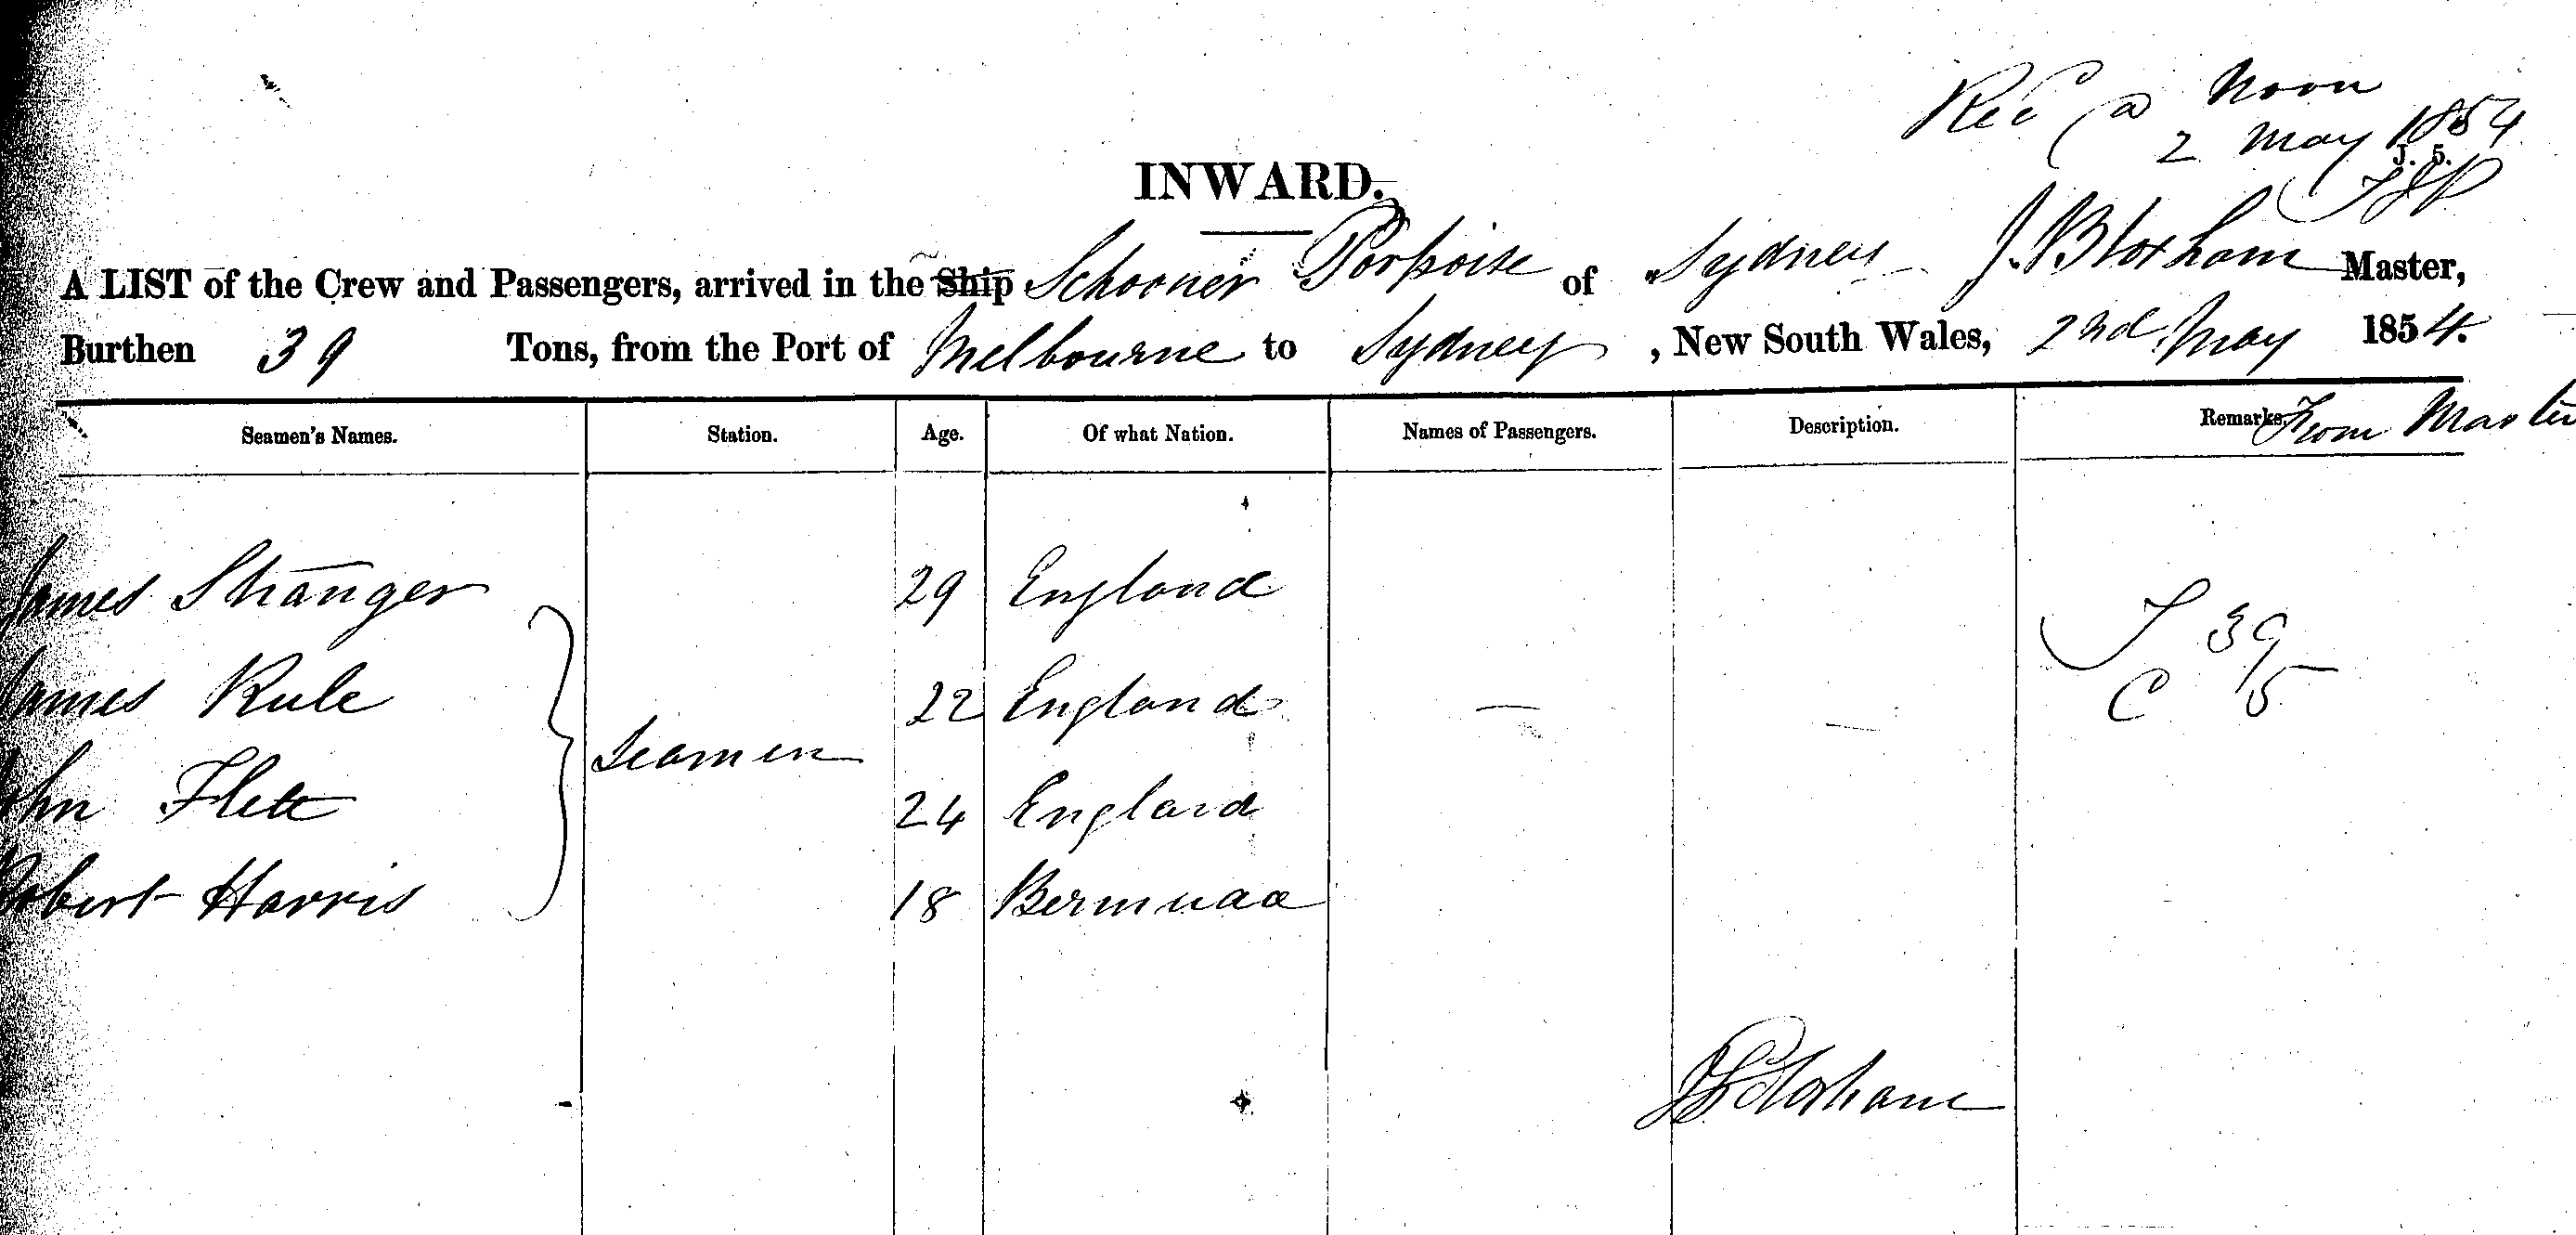 Rec @ Noon
2 May 1854
J. 5.
INWARD.
A LIST of the Crew and Passengers, arrived in the Ship Schooner Porpoise of Sydney J. Bloxham Master,
Burthen 39 Tons, from the Port of Melbourne to Sydney, New South Wales, 2nd May 1854.
Seamen's Names. Station. Age. Of what Nation. Names of Passengers. Description. Remarks. From Master
James Stranger 29 England
T 39
James Rule 22 England — —
C 5
Seamen
John Flett 24 England
Robert Harris 18 Bermuda
J Bloxham